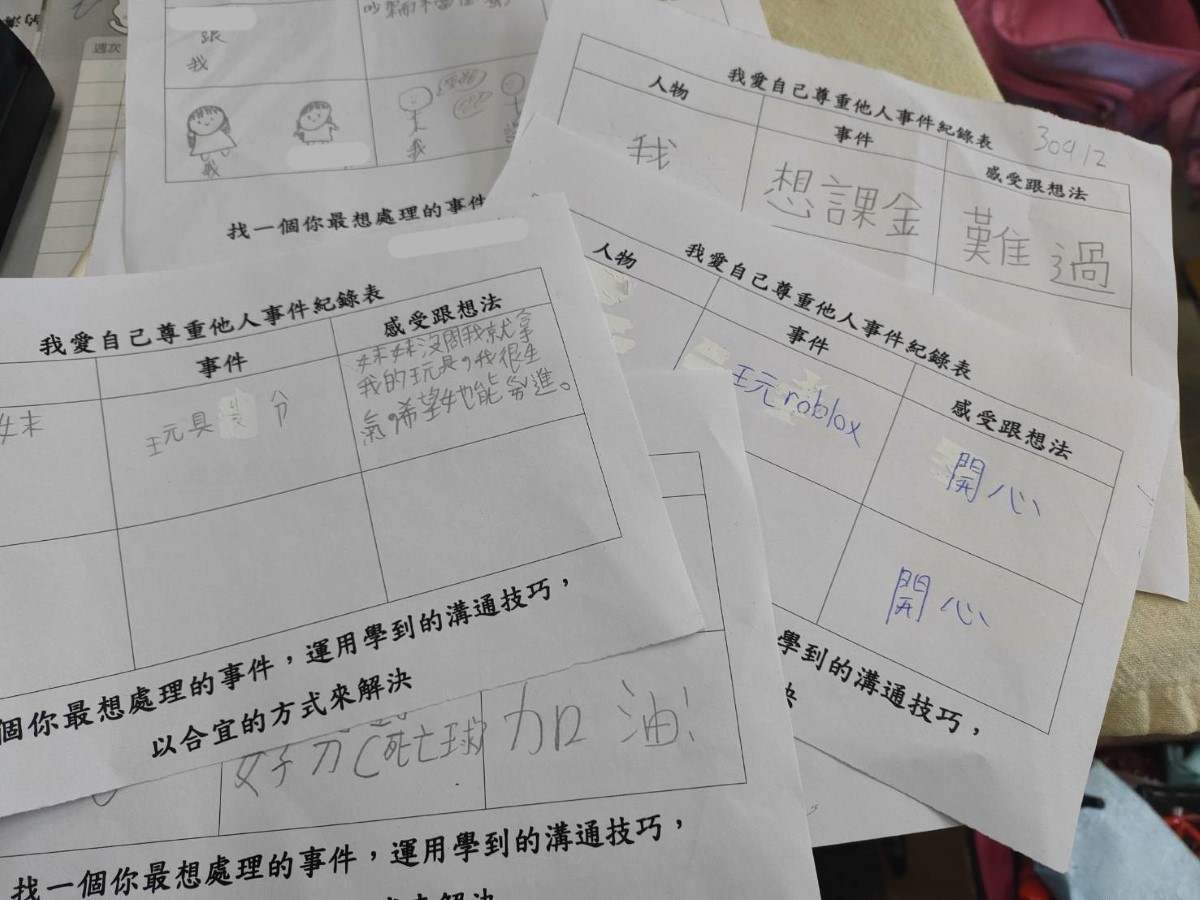 週次
跟
我
我
我
找一個你最想處理的事件
我愛自己尊重他人事件紀錄表
30912
人物
事件
感受跟想法
我
想課金
難過
我愛自己尊重他人事件紀錄表
人物
事件
感受跟想法
玩roblox
開心
開心
學到的溝通技巧，
決
我愛自己尊重他人事件紀錄表
事件
感受跟想法
妹
玩具
分
妹妹沒問我就拿
我的玩具，我很生
氣，希望她能
進。
個你最想處理的事件，運用學到的溝通技巧，
以合宜的方式來解決
(死亡球)
加油!
找一個你最想處理的事件，運用學到的溝通技巧，
來解決